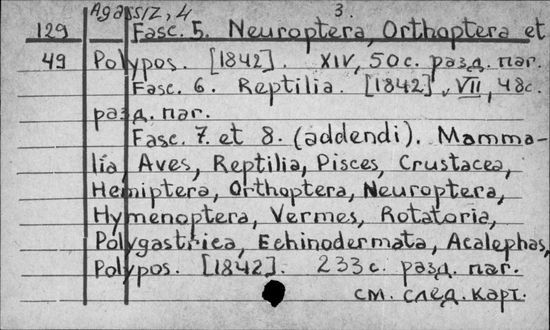 Agassiz, 4 3.
129 Fasc. 5. Neuroptera, Orthoptera et
49 Polypos. [1842]. XIV, 50 с. разд. паг.
Fasc. 6. Reptilia. [1842], VII, 48с.
разд. паг.
Fasc. 7. et 8. (addendi). Mamma-
lia, Aves, Reptilia, Pisces, Crustacea,
Hemiptera, Orthoptera, Neuroptera,
Hymenoptera, Vermes, Rotatoria,
Polygastrica, Echinodermata, Acalephas,
Polypos. [1842]. 233 с. разд. паг.
см. след. карт.